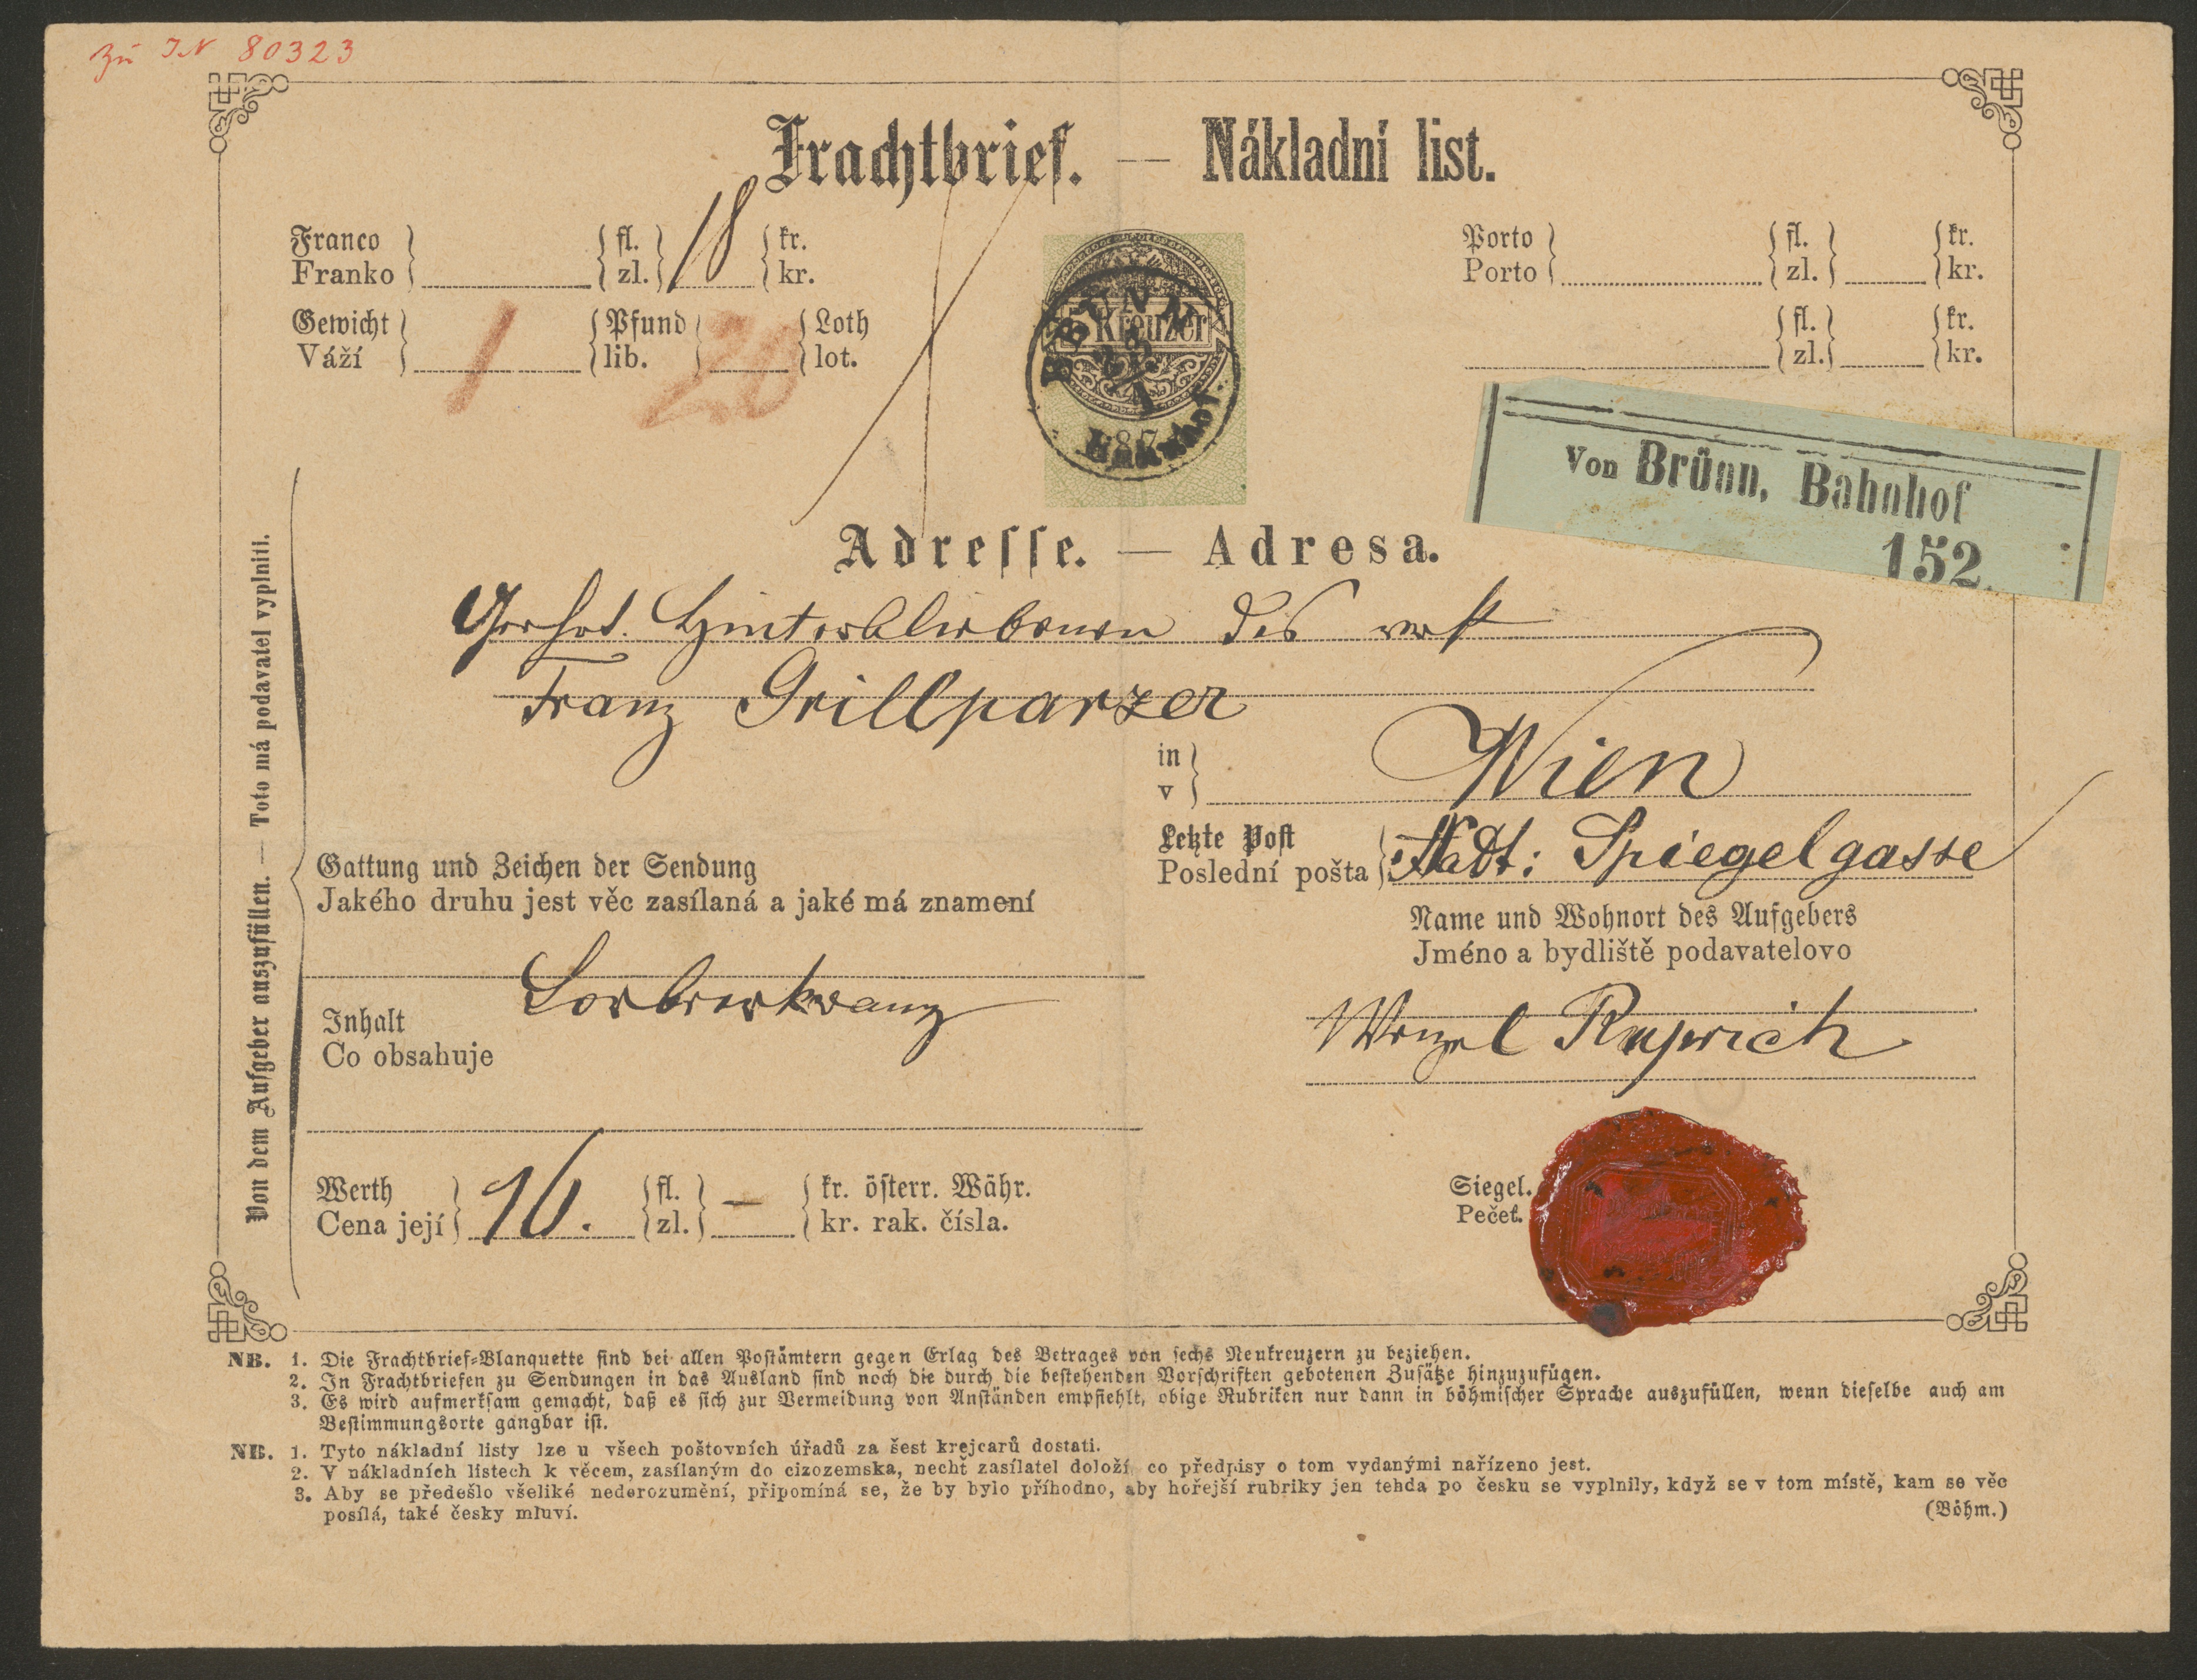 zu IN 80323
Frachtbrief. — Nákladní list.
Franco
Franko
fl.
zl.
18
kr.
kr.
Gewicht
Váží
1
Pfund
lib.
20
Loth
lot.
5 Kreuzer
BRÜNN
Bahnhof
Porto
Porto
fl.
zl.
kr.
kr.
fl.
zl.
kr.
kr.
Von Brünn, Bahnhof
152.
Adresse. — Adresa.
Hinterbliebenen des
Franz Grillparzer
in
v
Wien
Letzte Post
Poslední pošta
Stadt: Spiegelgasse
Von dem Aufgeber auszufüllen. — Toto má podavatel vyplniti.
Gattung und Zeichen der Sendung
Jakého druhu jest věc zasílaná a jaké má znamení
Name und Wohnort des Aufgebers
Jméno a bydliště podavatelovo
Inhalt
Co obsahuje
Lorbeerkranz
Wenzel Ruprich
Werth
Cena její
16.
fl.
zl.
—
kr. österr. Währ.
kr. rak. čísla.
Siegel.
Pečeť.
NB. 1. Die Frachtbrief-Blanquette sind bei allen Postämtern gegen Erlag des Betrages von sechs Neukreuzern zu beziehen.
2. In Frachtbriefen zu Sendungen in das Ausland sind noch die durch die bestehenden Vorschriften gebotenen Zusätze hinzuzufügen.
3. Es wird aufmerksam gemacht, daß es sich zur Vermeidung von Anständen empfiehlt, obige Rubriken nur dann in böhmischer Sprache auszufüllen, wenn dieselbe auch am
Bestimmungsorte gangbar ist.
NB. 1. Tyto nákladní listy lze u všech poštovních úřadů za šest krejcarů dostati.
2. V nákladních listech k věcem, zasílaným do cizozemska, nechť zasílatel doloží co předpisy o tom vydanými nařízeno jest.
3. Aby se předešlo všeliké nedorozumění, připomíná se, že by bylo příhodno, aby hořejší rubriky jen tehda po česku se vyplnily, když se v tom místě, kam se věc
posílá, také česky mluví.
(Böhm.)